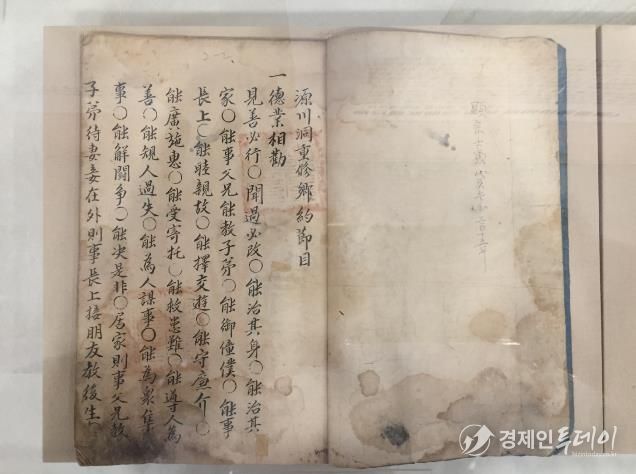 源川洞重修鄕約節目
一德業相勸
見善必行○聞過必改○能治其身○能治其
家○能事父兄能敎子弟○能御僮僕○能事
長上○能睦親故○能擇交遊○能守廉介○
能廣施惠○能受寄托○能救患難○能導人為
善○能規人過失○能為人謀事○能為衆集
事○能解鬪爭○能决是非○居家則事父兄敎
子弟待妻妾在外則事長上接朋友敎後生
경제인투데이